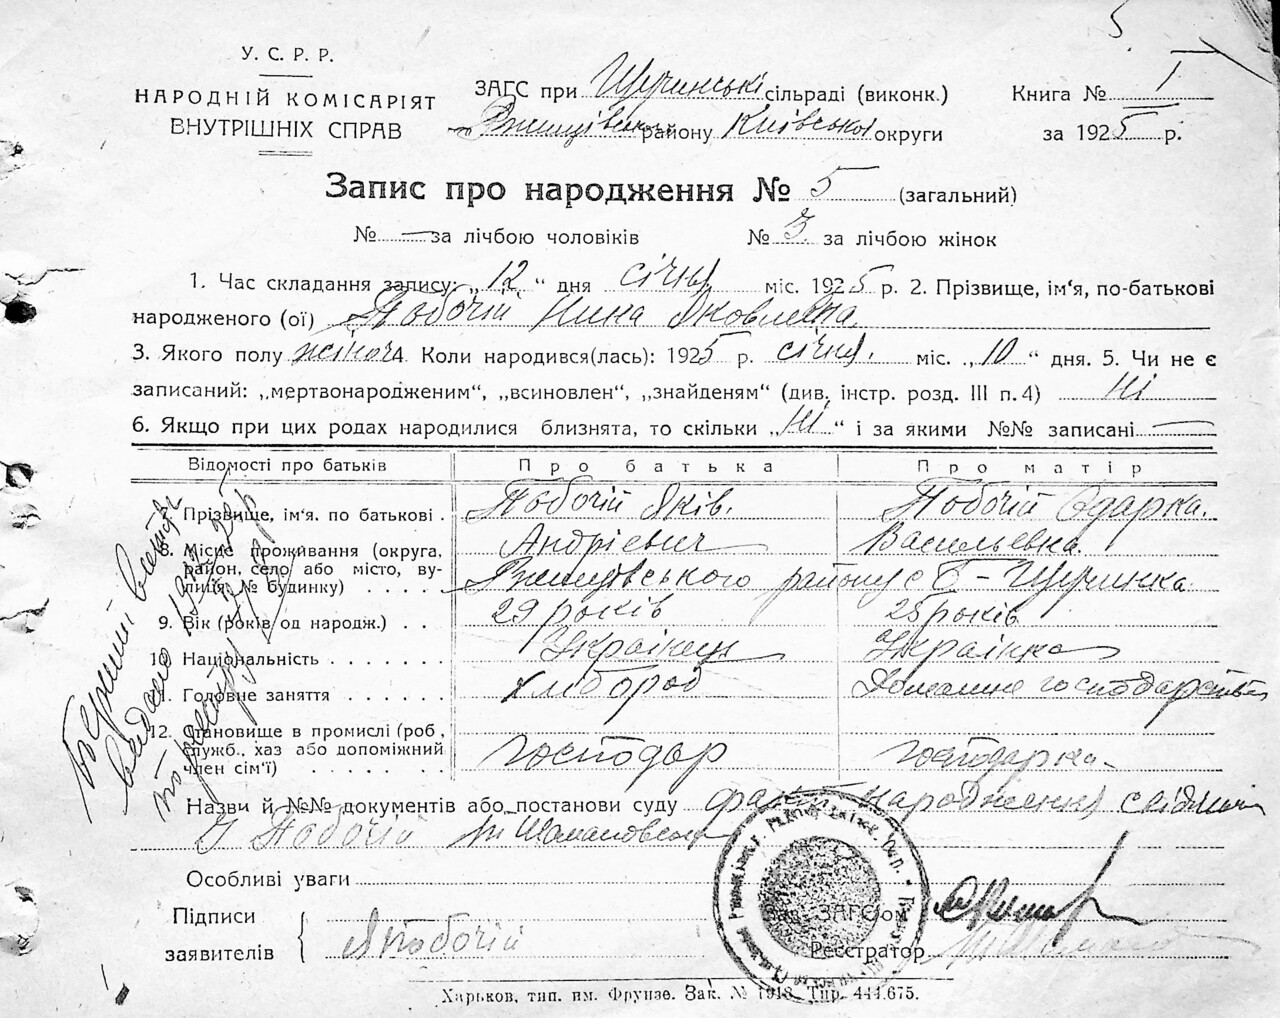 5.
У. С. Р. Р.
НАРОДНІЙ КОМІСАРІЯТ
ВНУТРІШНІХ СПРАВ
ЗАГС при Щучинські сільраді (виконк.)
Ржищівськ району Київської округи
Книга № I
за 1925 р.
Запис про народження № 5 (загальний)
№ — за лічбою чоловіків № 3 за лічбою жінок
1. Час складання запису: „12“ дня січня міс. 1925 р. 2. Прізвище, ім'я, по-батькові
народженого (ої) Побочій Нина Яковлевна
3. Якого полу жіноч 4. Коли народився(лась): 1925 р. січня. міс. „10“ дня. 5. Чи не є
записаний: „мертвонародженим“, „всиновлен“, „знайденям“ (див. інстр. розд. III п. 4) Ні
6. Якщо при цих родах народилися близнята, то скільки „Ні“ і за якими №№ записані —
Відомості про батьків Про батька Про матір
Прізвище, ім'я. по батькові . Побочій Яків. Побочій Одарка.
8. Місце проживання (округа, Андрієвич Васильевка.
район, село або місто, ву-
лиця, № будинку) . . . . Ржищівського району с Б-Щучинка
9. Вік (років од народж.) . . 29 років 25 років
10. Національність . . . . . . . Українець Українка
11. Головне заняття . . . . . . хлібороб Домашне господарство
12. Становище в промислі (роб,
служб., хаз або допоміжний
член сім'ї) . . . . . . . господар господарка
Назви й №№ документів або постанови суду факт народження свідчили
Я Побочій
Особливі уваги
Підписи
заявителів
Я Побочій
Зав. ЗАГС'ом
Реєстратор
Харьков, тип. им. Фрунзе. Зак. № 1918 Тир. 444.675.
видано